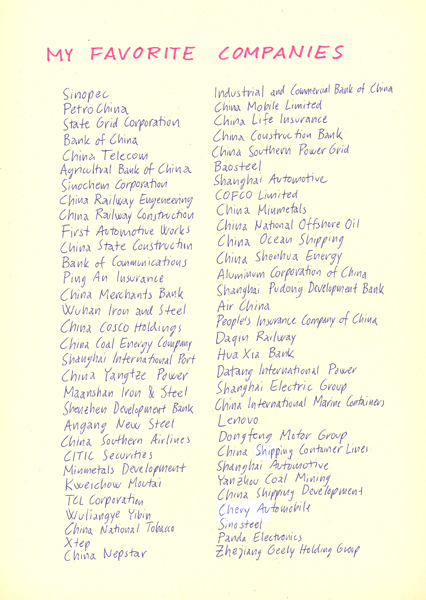 MY FAVORITE COMPANIES
Sinopec
PetroChina
State Grid Corporation
Bank of China
China Telecom
Agricultral Bank of China
Sinochem Corporation
China Railway Engeneering
China Railway Construction
First Automotive Works
China State Construction
Bank of Communications
Ping An Insurance
China Merchants Bank
Wuhan Iron and Steel
China COSCO Holdings
China Coal Energy Company
Shanghai International Port
China Yangtze Power
Maanshan Iron & Steel
Shenzhen Development Bank
Angang New Steel
China Southern Airlines
CITIC Securities
Minmetals Development
Kweichow Moutai
TCL Corporation
Wuliangye Yibin
China National Tobacco
Xtep
China Nepstar
Industrial and Commercial Bank of China
China Mobile Limited
China Life Insurance
China Construction Bank
China Southern Power Grid
Baosteel
Shanghai Automotive
COFCO Limited
China Minmetals
China National Offshore Oil
China Ocean Shipping
China Shenhua Energy
Aluminum Corporation of China
Shanghai Pudong Development Bank
Air China
People's Insurance Company of China
Daqin Railway
Hua Xia Bank
Datang International Power
Shanghai Electric Group
China International Marine Containers
Lenovo
Dongfeng Motor Group
China Shipping Container Lines
Shanghai Automotive
Yanzhou Coal Mining
China Shipping Development
Chery Automobile
Sinosteel
Panda Electronics
Zhejiang Geely Holding Group